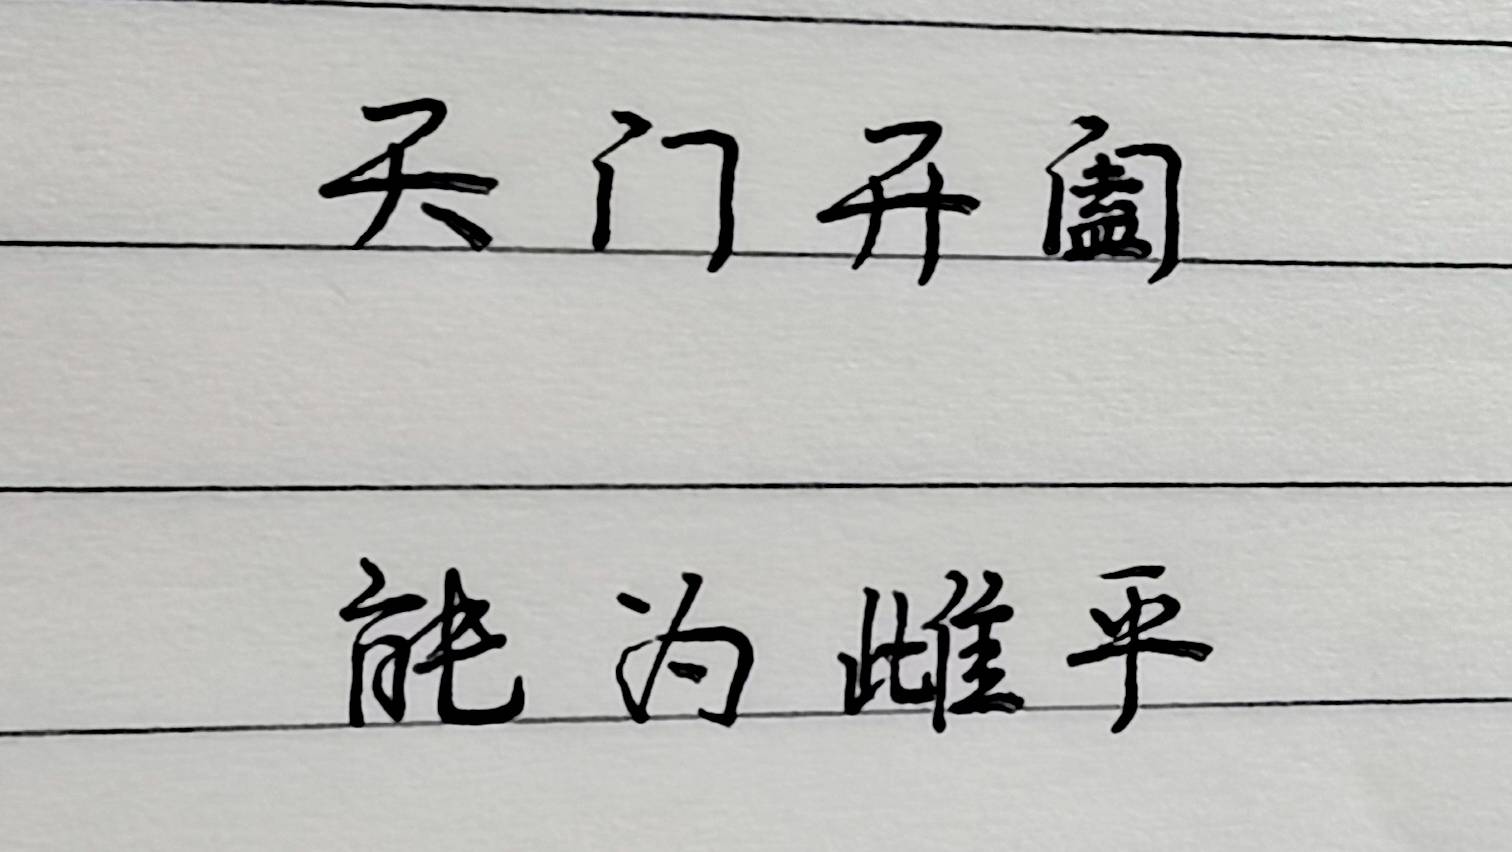 天门开阖
能为雌平